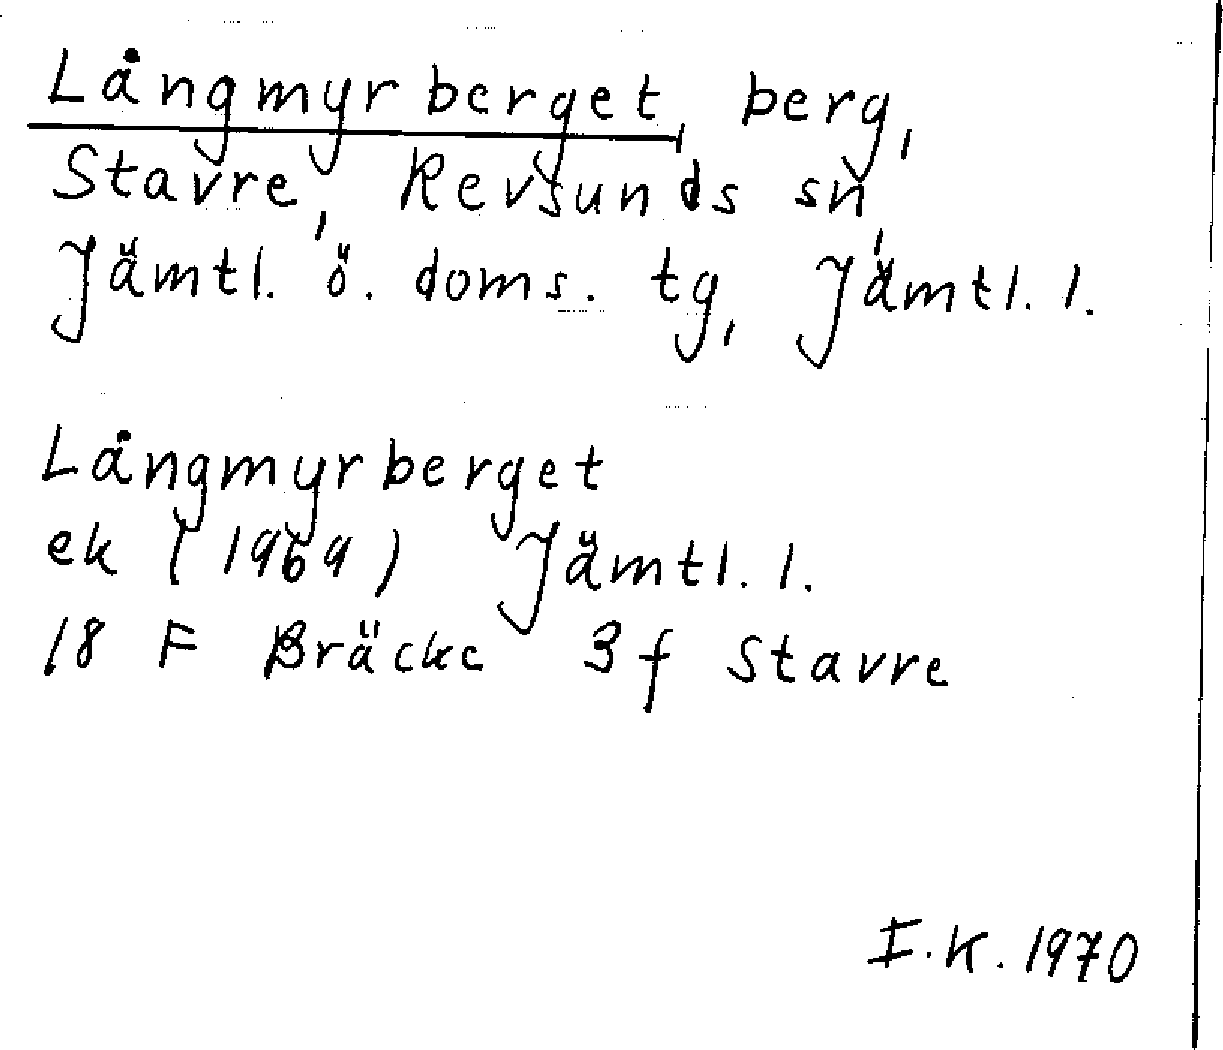 Långmyrberget, berg,
Stavre, Revsunds sn,
Jämtl. ö. doms. tg, Jämtl. l.
Långmyrberget
ek (1969) Jämtl. l.
18 F Bräcke 3 f Stavre
I.K. 1970